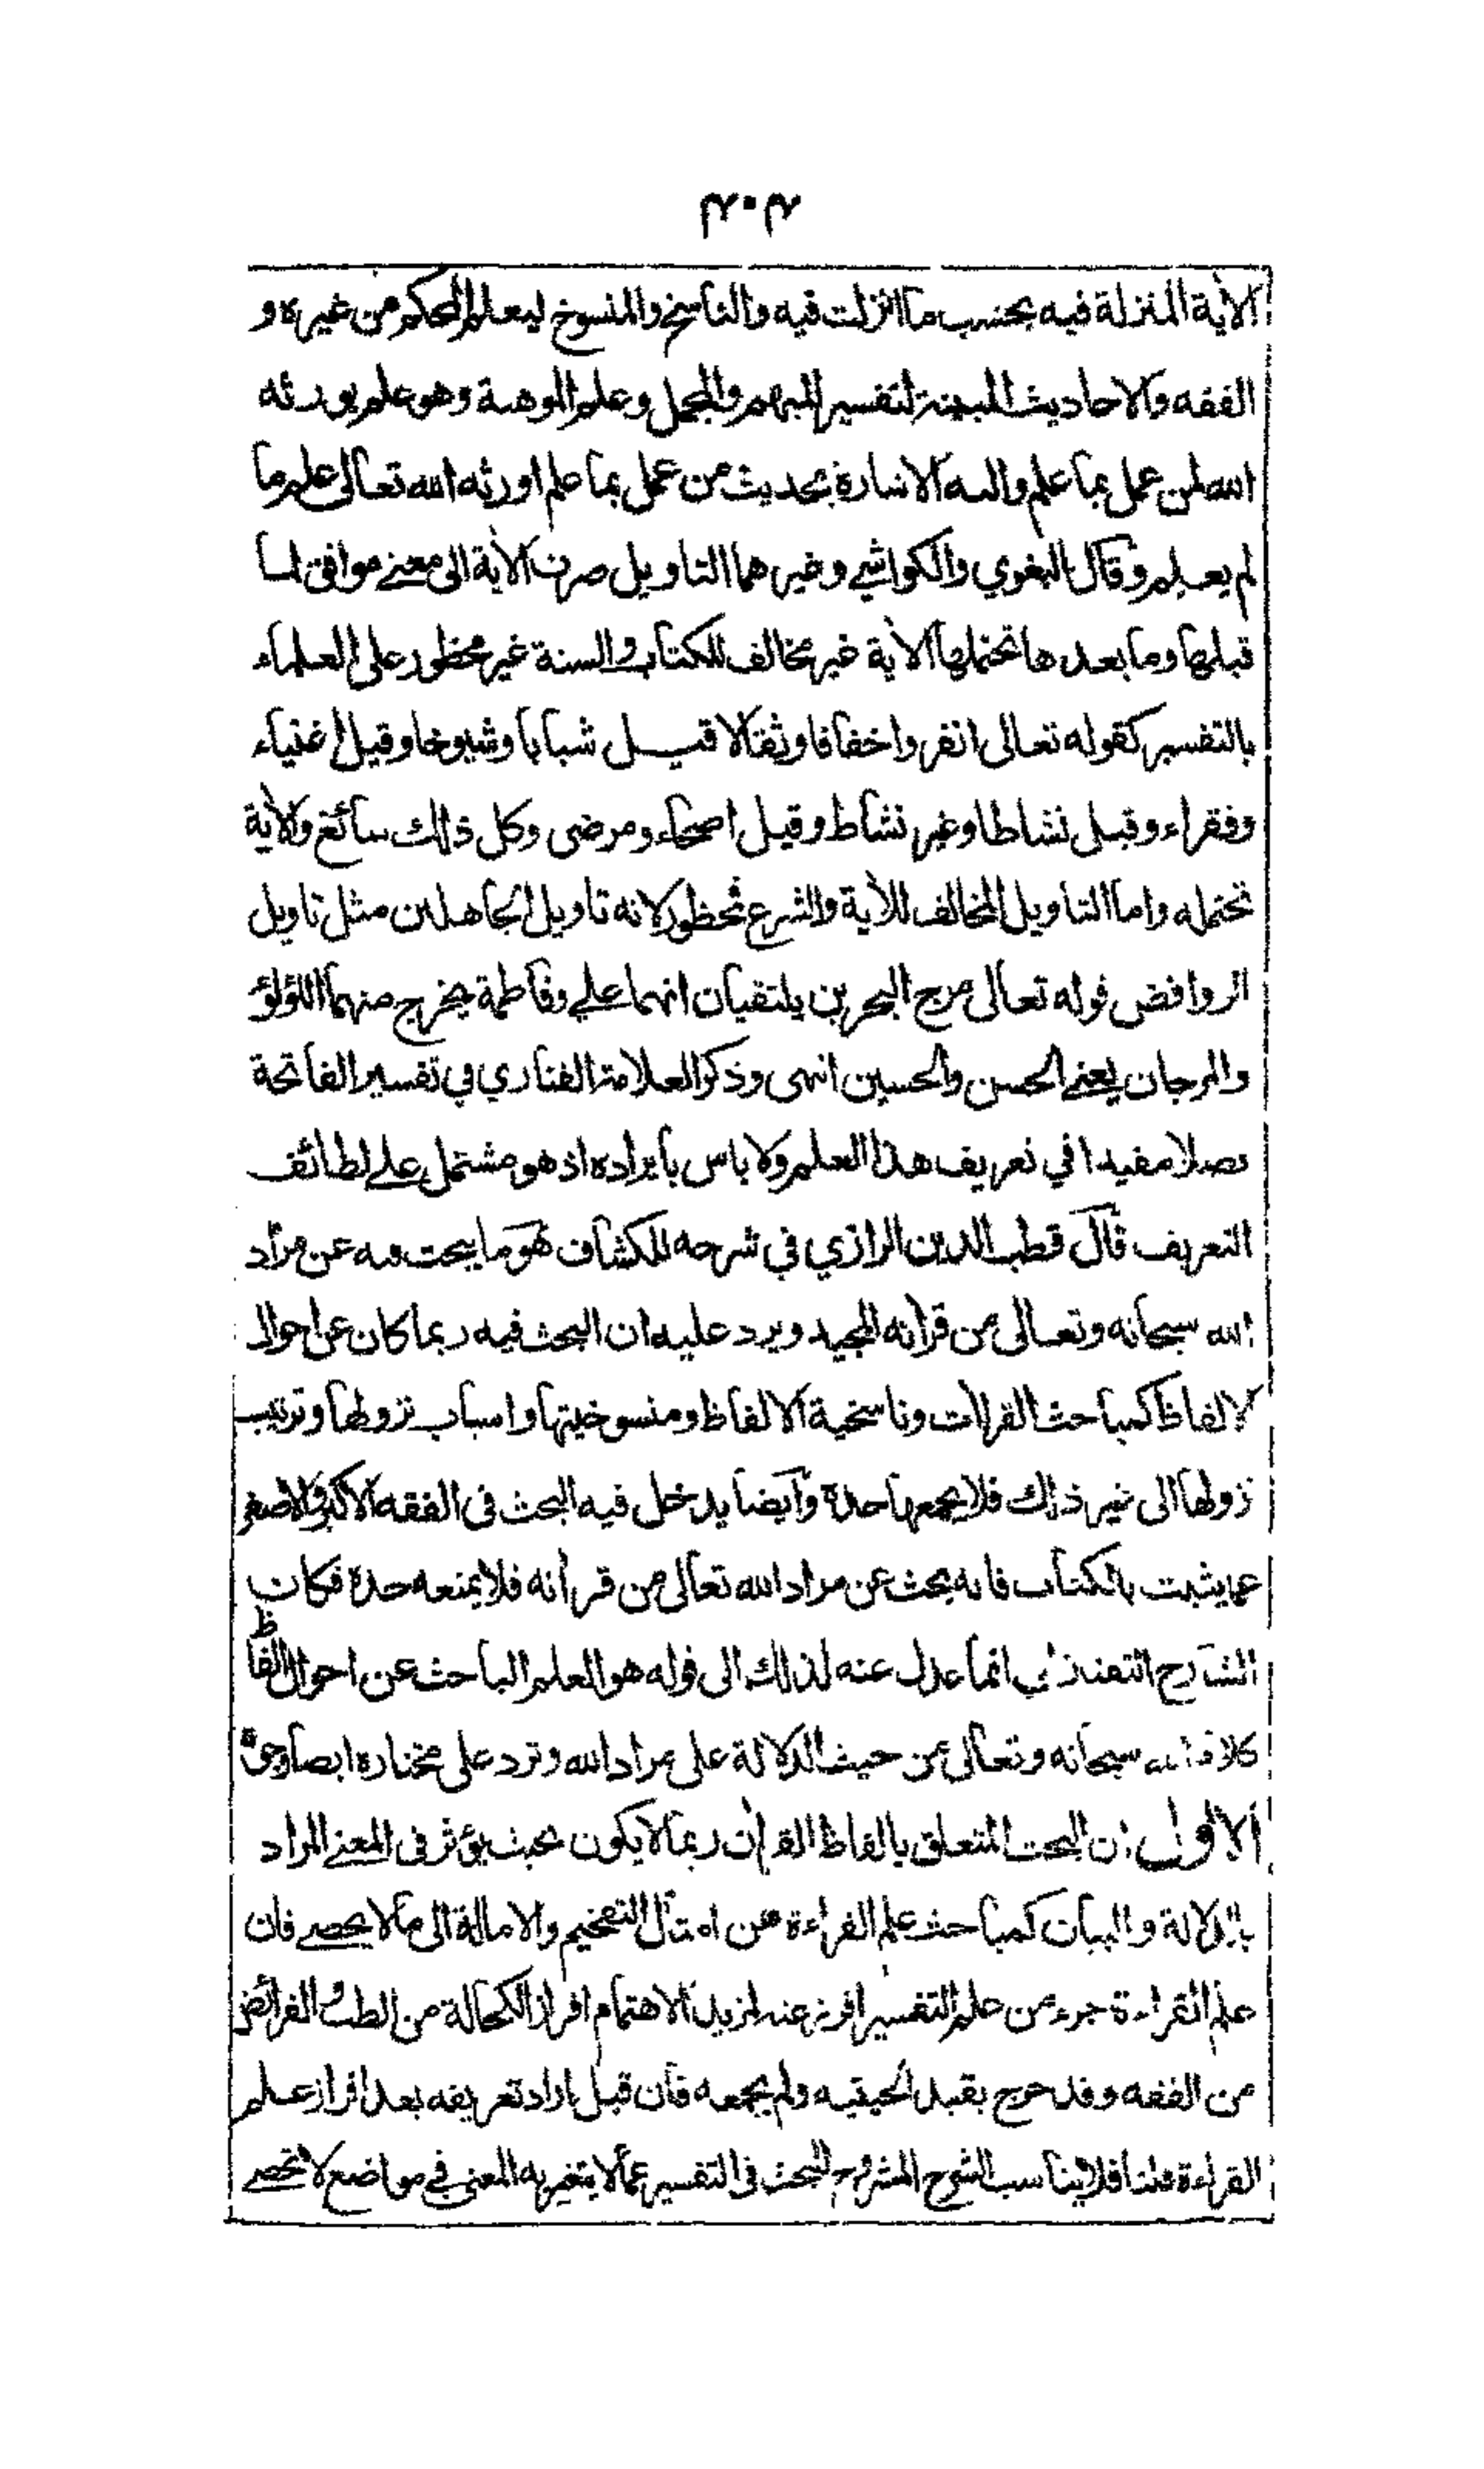 ٣٠٣
الآية المنزلة فيه بحسب ما انزلت فيه والناسخ والمنسوخ ليعلم المحكم من غيره و
الفقه والاحاديث المبينة لتفسير المبهم والمجمل وعلم الموهبة وهو علم يورثه
الله لمن عمل بما علم واليه الاشارة بحديث من عمل بما علم اورثه الله تعالى علم ما
لم يعلم وقال البغوي والكواشي وغيرهما التاويل صرف الآية الى معنى موافق لما
قبلها وما بعدها تحتملها الآية غير مخالف للكتاب والسنة غير محظور على العلماء
بالتفسير كقوله تعالى انفروا خفافا وثقالا قيل شبابا وشيوخا وقيل اغنياء
وفقراء وقيل نشاطا وغير نشاط وقيل اصحاء ومرضى وكل ذلك سائغ والآية
تحتمله واما التاويل المخالف للآية والشرع فمحظور لانه تاويل الجاهلين مثل تاويل
الروافض قوله تعالى مرج البحرين يلتقيان انهما علي وفاطمة يخرج منهما اللؤلؤ
والمرجان يعني الحسن والحسين انتهى وذكر العلامة الفناري في تفسير الفاتحة
فصلا مفيدا في تعريف هذا العلم ولا باس بايراده اذ هو مشتمل على لطائف
التعريف قال قطب الدين الرازي في شرحه للكشاف هو ما يبحث فيه عن مراد
الله سبحانه وتعالى من قرآنه المجيد ويرد عليه ان البحث فيه ربما كان عن احوال
الالفاظ كمباحث القراآت وناسخية الالفاظ ومنسوخيتها واسباب نزولها وترتيب
نزولها الى غير ذلك فلا يجمعها حده وايضا يدخل فيه البحث في الفقه الاكبر والاصغر
عما يثبت بالكتاب فانه بحث عن مراد الله تعالى من قرآنه فلا يمنعه حده فكان
الشارح التفتازاني انما عدل عنه لذلك الى قوله هو العلم الباحث عن احوال الفاظ
كلام الله سبحانه وتعالى من حيث الدلالة على مراد الله وترد على مختاره ايضا وجوه
الاول ان البحث المتعلق بالفاظ القرآن ربما لا يكون بحيث يؤثر في المعنى المراد
بالدلالة والبيان كمباحث علم القراءة عن امثال التفخيم والامالة الى ما لا يحصى فان
علم القراءة جزء من علم التفسير افرز عنه لمزيد الاهتمام افراز الكحالة من الطب والفرائض
من الفقه وقد خرج بقيد الحيثية ولم يجمعه فان قيل اراد تعريفه بعد افراز علم
القراءة قلنا فلا يناسب الشرح المشروح للبحث في التفسير عما لا يتغير به المعنى في مواضع لا تحصى